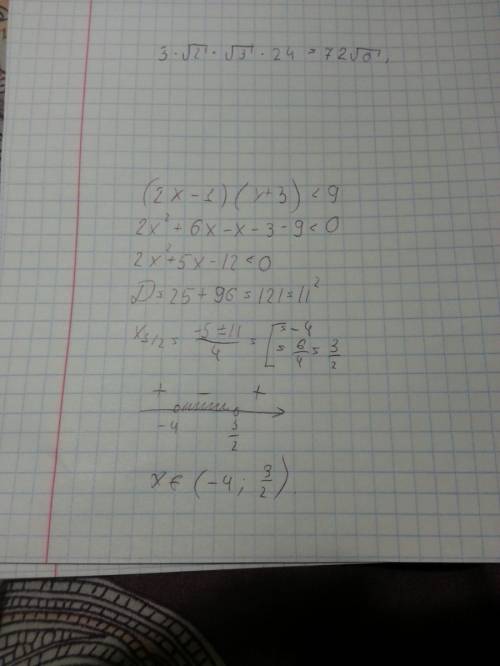 3 · √2 · √3 · 24 = 72√6,
(2x - 1)(x + 3) < 9
2x² + 6x - x - 3 - 9 < 0
2x² + 5x - 12 < 0
D = 25 + 96 = 121 = 11²
x₁/₂ = (-5 ± 11)/4 = [ = -4
= 6/4 = 3/2
+ - +
-4 3/2
x ∈ (-4; 3/2).